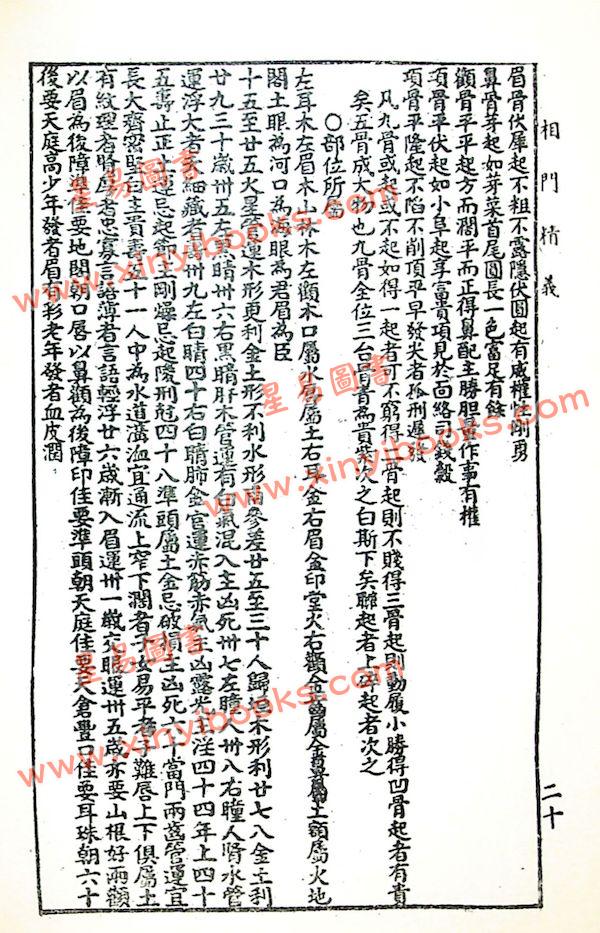 相門精義
眉骨伏犀起不粗不露隱伏圓起有威權性剛勇
鼻骨芽起如芽菜首尾圓長一色富足有餘
顴骨平平起方而闊平而正得鼻配主勝胆量作事有權
項骨平伏起如小阜起享富貴項見於面絡司錢穀
項骨平隆起不陷不削頂平早發尖者孤刑遲發
凡九骨或起或不起如得一起者可不窮得二骨起則不賤得三骨起則動履小勝得四骨起者有貴
矣五骨成大物也九骨全位三台骨青為貴紫次之白斯下矣聯起者上單起者次之
○部位所屬
左耳木左眉木山林木左顴木口屬水唇屬土右耳金右眉金印堂火右顴金齒屬金鼻屬土額屬火地
閣土眼為河口為海眼為君眉為臣
十五至廿五火星管運木形更利金土形不利水形南參差廿五至三十人歸垣木形利廿七八金土利
廿九三十歲卅五左黑睛卅六右黑睛肝木管運有白氣混入主凶死卅七左瞳人卅八右瞳人腎水管
運浮大者 細藏者 卅九左白睛四十右白睛肺金官運赤筋赤氣主凶露光主淫四十四年上四十
五壽止正 運忌起節主剛燥忌起陵刑冠四十八準頭屬土金忌破損主凶死六十當門兩齒管運宜
長大齊密堅白主貴壽五十一人中為水道溝洫宜通流上窄下濶者子女易平者子難唇上下俱屬土
有紋理者賢厚者忠寡言語薄者言語輕浮廿六歲漸入眉運卅一歲交眼運卅五歲亦要山根好兩顴
以眉為後障準佳要地閣朝口唇以鼻顴為後障印佳要準頭朝天庭佳要天倉豐口佳要耳珠朝六十
後要天庭高少年發者眉有彩老年發者血皮潤
二十
星易圖書
www.xinyibooks.com
星易圖書
www.xinyibooks.com
星易圖書
www.xinyibooks.com